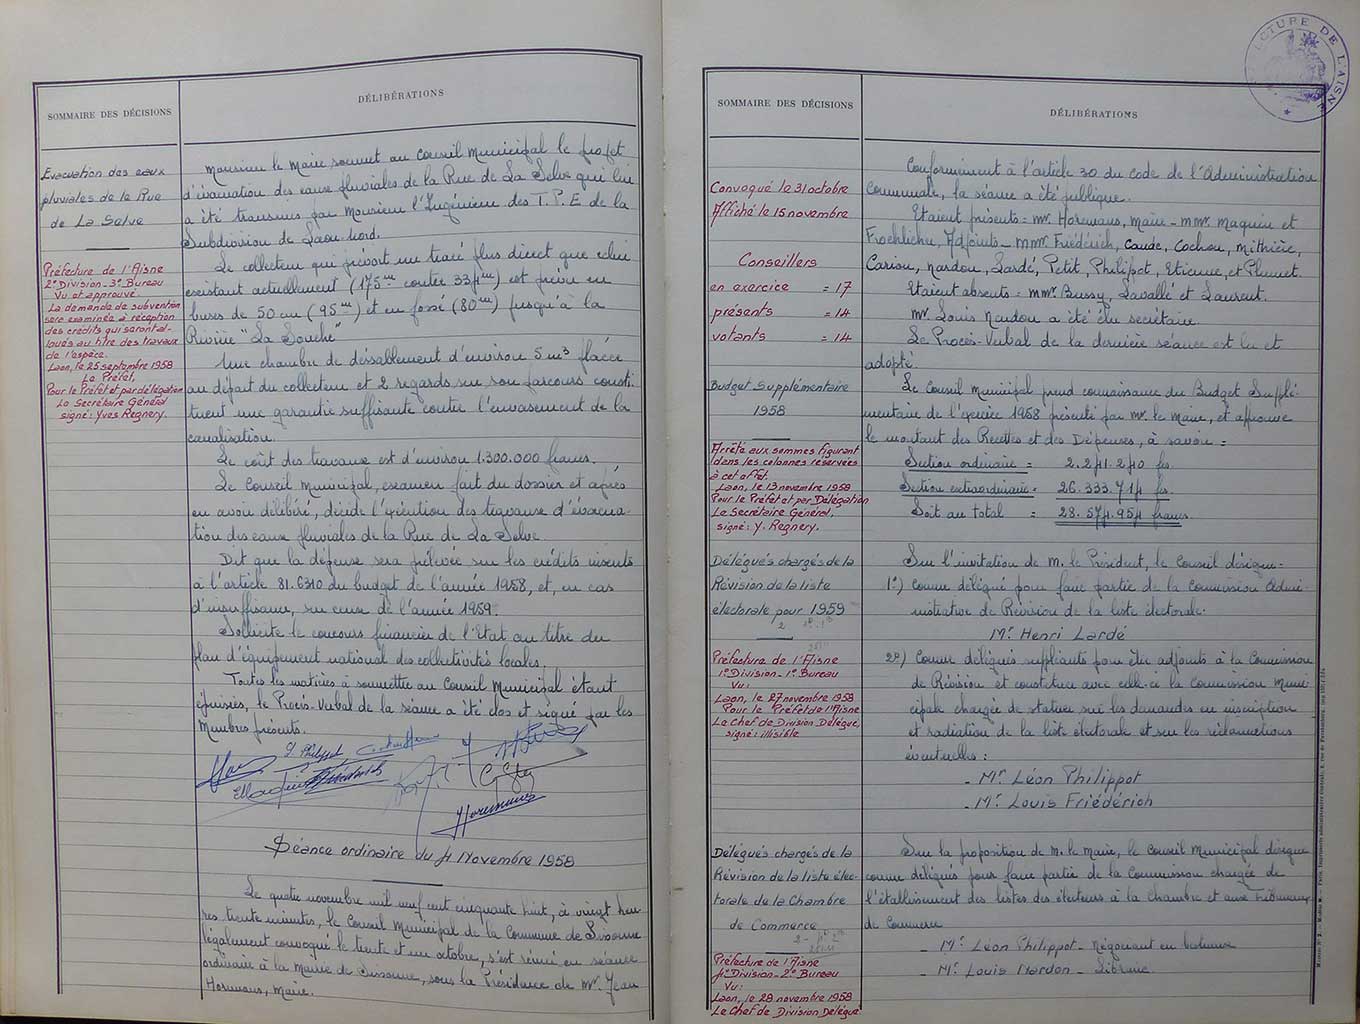 SOMMAIRE DES DÉCISIONS
DÉLIBÉRATIONS
Evacuation des eaux
pluviales de la Rue
de La Selve
Préfecture de l'Aisne
2e Division - 3e Bureau
Vu et approuvé
La demande de subvention
sera examinée à réception
des crédits qui seront al-
loués au titre des travaux
de l'espèce.
Laon, le 25 septembre 1958
Le Préfet,
Pour le Préfet et par délégation
Le Secrétaire Général
signé: Yves Regnery.
Monsieur le Maire soumet au Conseil Municipal le projet
d'évacuation des eaux pluviales de la Rue de La Selve qui lui
a été transmis par Monsieur l'Ingénieur des T.P.E de la
Subdivision de Laon-Nord.
Le collecteur qui prévoit un tracé plus direct que celui
existant actuellement (175m contre 334m) est prévu en
buses de 50 cm (95m) et en fossé (80m) jusqu'à la
Rivière "La Souche"
Une chambre de déssablement d'environ 5 m3 placée
au départ du collecteur et 2 regards sur son parcours consti-
tuent une garantie suffisante contre l'envasement de la
canalisation.
Le coût des travaux est d'environ 1.300.000 francs.
Le Conseil Municipal, examen fait du dossier et après
en avoir délibéré, décide l'exécution des travaux d'évacua-
tion des eaux pluviales de la Rue de La Selve.
Dit que la dépense sera prélevée sur les crédits inscrits
à l'article 81.6310 du budget de l'année 1958, et, en cas
d'insuffisance, sur ceux de l'année 1959.
Sollicite le concours financier de l'Etat au titre du
plan d'équipement national des collectivités locales.
Toutes les matières à soumettre au Conseil Municipal étant
épuisées, le Procès-Verbal de la séance a été clos et signé par les
Membres présents.
Séance ordinaire du 4 Novembre 1958
Le quatre novembre mil neuf cent cinquante huit, à vingt heu-
res trente minutes, le Conseil Municipal de la Commune de Sissonne
légalement convoqué le trente et un octobre, s'est réuni en séance
ordinaire à la Mairie de Sissonne, sous la Présidence de Mr. Jean
Hormans, Maire.
CTURE DE L'AISNE
SOMMAIRE DES DÉCISIONS
DÉLIBÉRATIONS
Convoqué le 31 octobre
Affiché le 15 novembre
Conseillers
en exercice = 17
présents = 14
votants = 14
Budget Supplémentaire
1958
Arrêté aux sommes figurant
dans les colonnes réservées
à cet effet.
Laon, le 13 novembre 1958
Pour le Préfet et par Délégation
Le Secrétaire Général,
signé: Y. Regnery.
Délégués chargés de la
Révision de la liste
électorale pour 1959
Préfecture de l'Aisne
1e Division - 1e Bureau
Vu:
Laon, le 27 novembre 1958
Pour le Préfet de l'Aisne
Le Chef de Division Délégué,
signé: illisible
Délégués chargés de la
Révision de la liste élec-
torale de la Chambre
de Commerce
Préfecture de l'Aisne
4e Division - 2e Bureau
Vu:
Laon, le 28 novembre 1958
Le Chef de Division Délégué
Conformément à l'article 30 du Code de l'Administration
Communale, la séance a été publique.
Etaient présents: Mr. Hormans, Maire - MMr. Maquin et
Froehlicher, Adjoints - MMr. Friédérich, Caude, Cochon, Mithière,
Cariou, Nardon, Lardé, Petit, Philipot, Etienne, et Plumet.
Etaient absents: MMr. Bussy, Lavallé et Laurent.
Mr. Louis Nardon a été élu secrétaire.
Le Procès-Verbal de la dernière séance est lu et
adopté.
Le Conseil Municipal prend connaissance du Budget Supplé-
mentaire de l'exercice 1958 présenté par Mr. le Maire, et approuve
le montant des Recettes et des Dépenses, à savoir:
Section ordinaire = 2.241.240 frs.
Section extraordinaire = 26.333.714 frs.
Soit au total = 28.574.954 francs.
Sur l'invitation de M. le Président, le Conseil désigne:
1°) comme délégué pour faire partie de la Commission Admi-
nistrative de Révision de la liste électorale.
Mr. Henri Lardé
2°) comme délégués suppliants pour être adjoints à la Commission
de Révision et constituer avec celle-ci la Commission Muni-
cipale chargée de statuer sur les demandes en inscription
et radiation de la liste électorale et sur les réclamations
éventuelles:
- Mr. Léon Philippot
- Mr. Louis Friédérich
Sur la proposition de M. le Maire, le Conseil Municipal désigne
comme délégués pour faire partie de la Commission chargée de
l'établissement des listes des électeurs à la Chambre et aux Tribunaux
de Commerce
- Mr. Léon Philippot - Négociant en
- Mr. Louis Nardon - Libraire